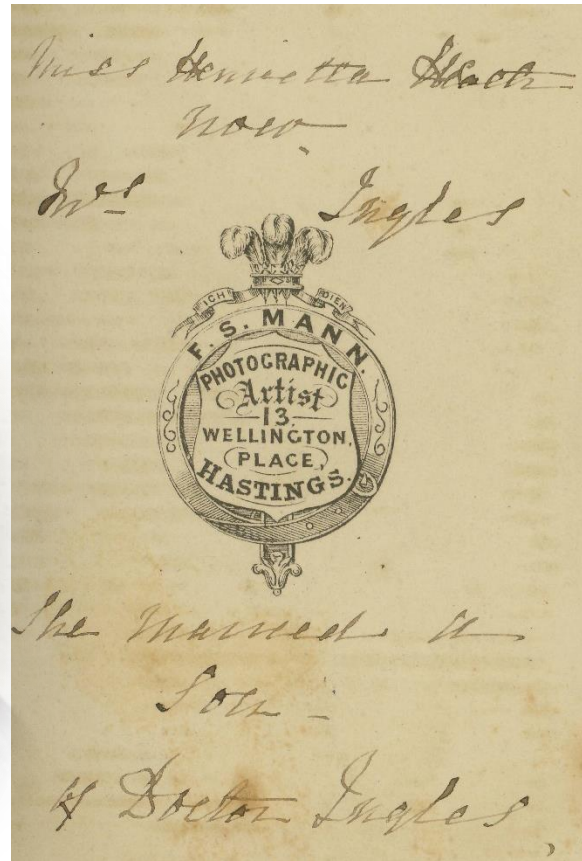 Miss Henrietta
now
Mrs Ingles
ICH DIEN
F. S. MANN.
PHOTOGRAPHIC
Artist
13.
WELLINGTON,
PLACE,
HASTINGS.
She married a
Son -
of Doctor Ingles